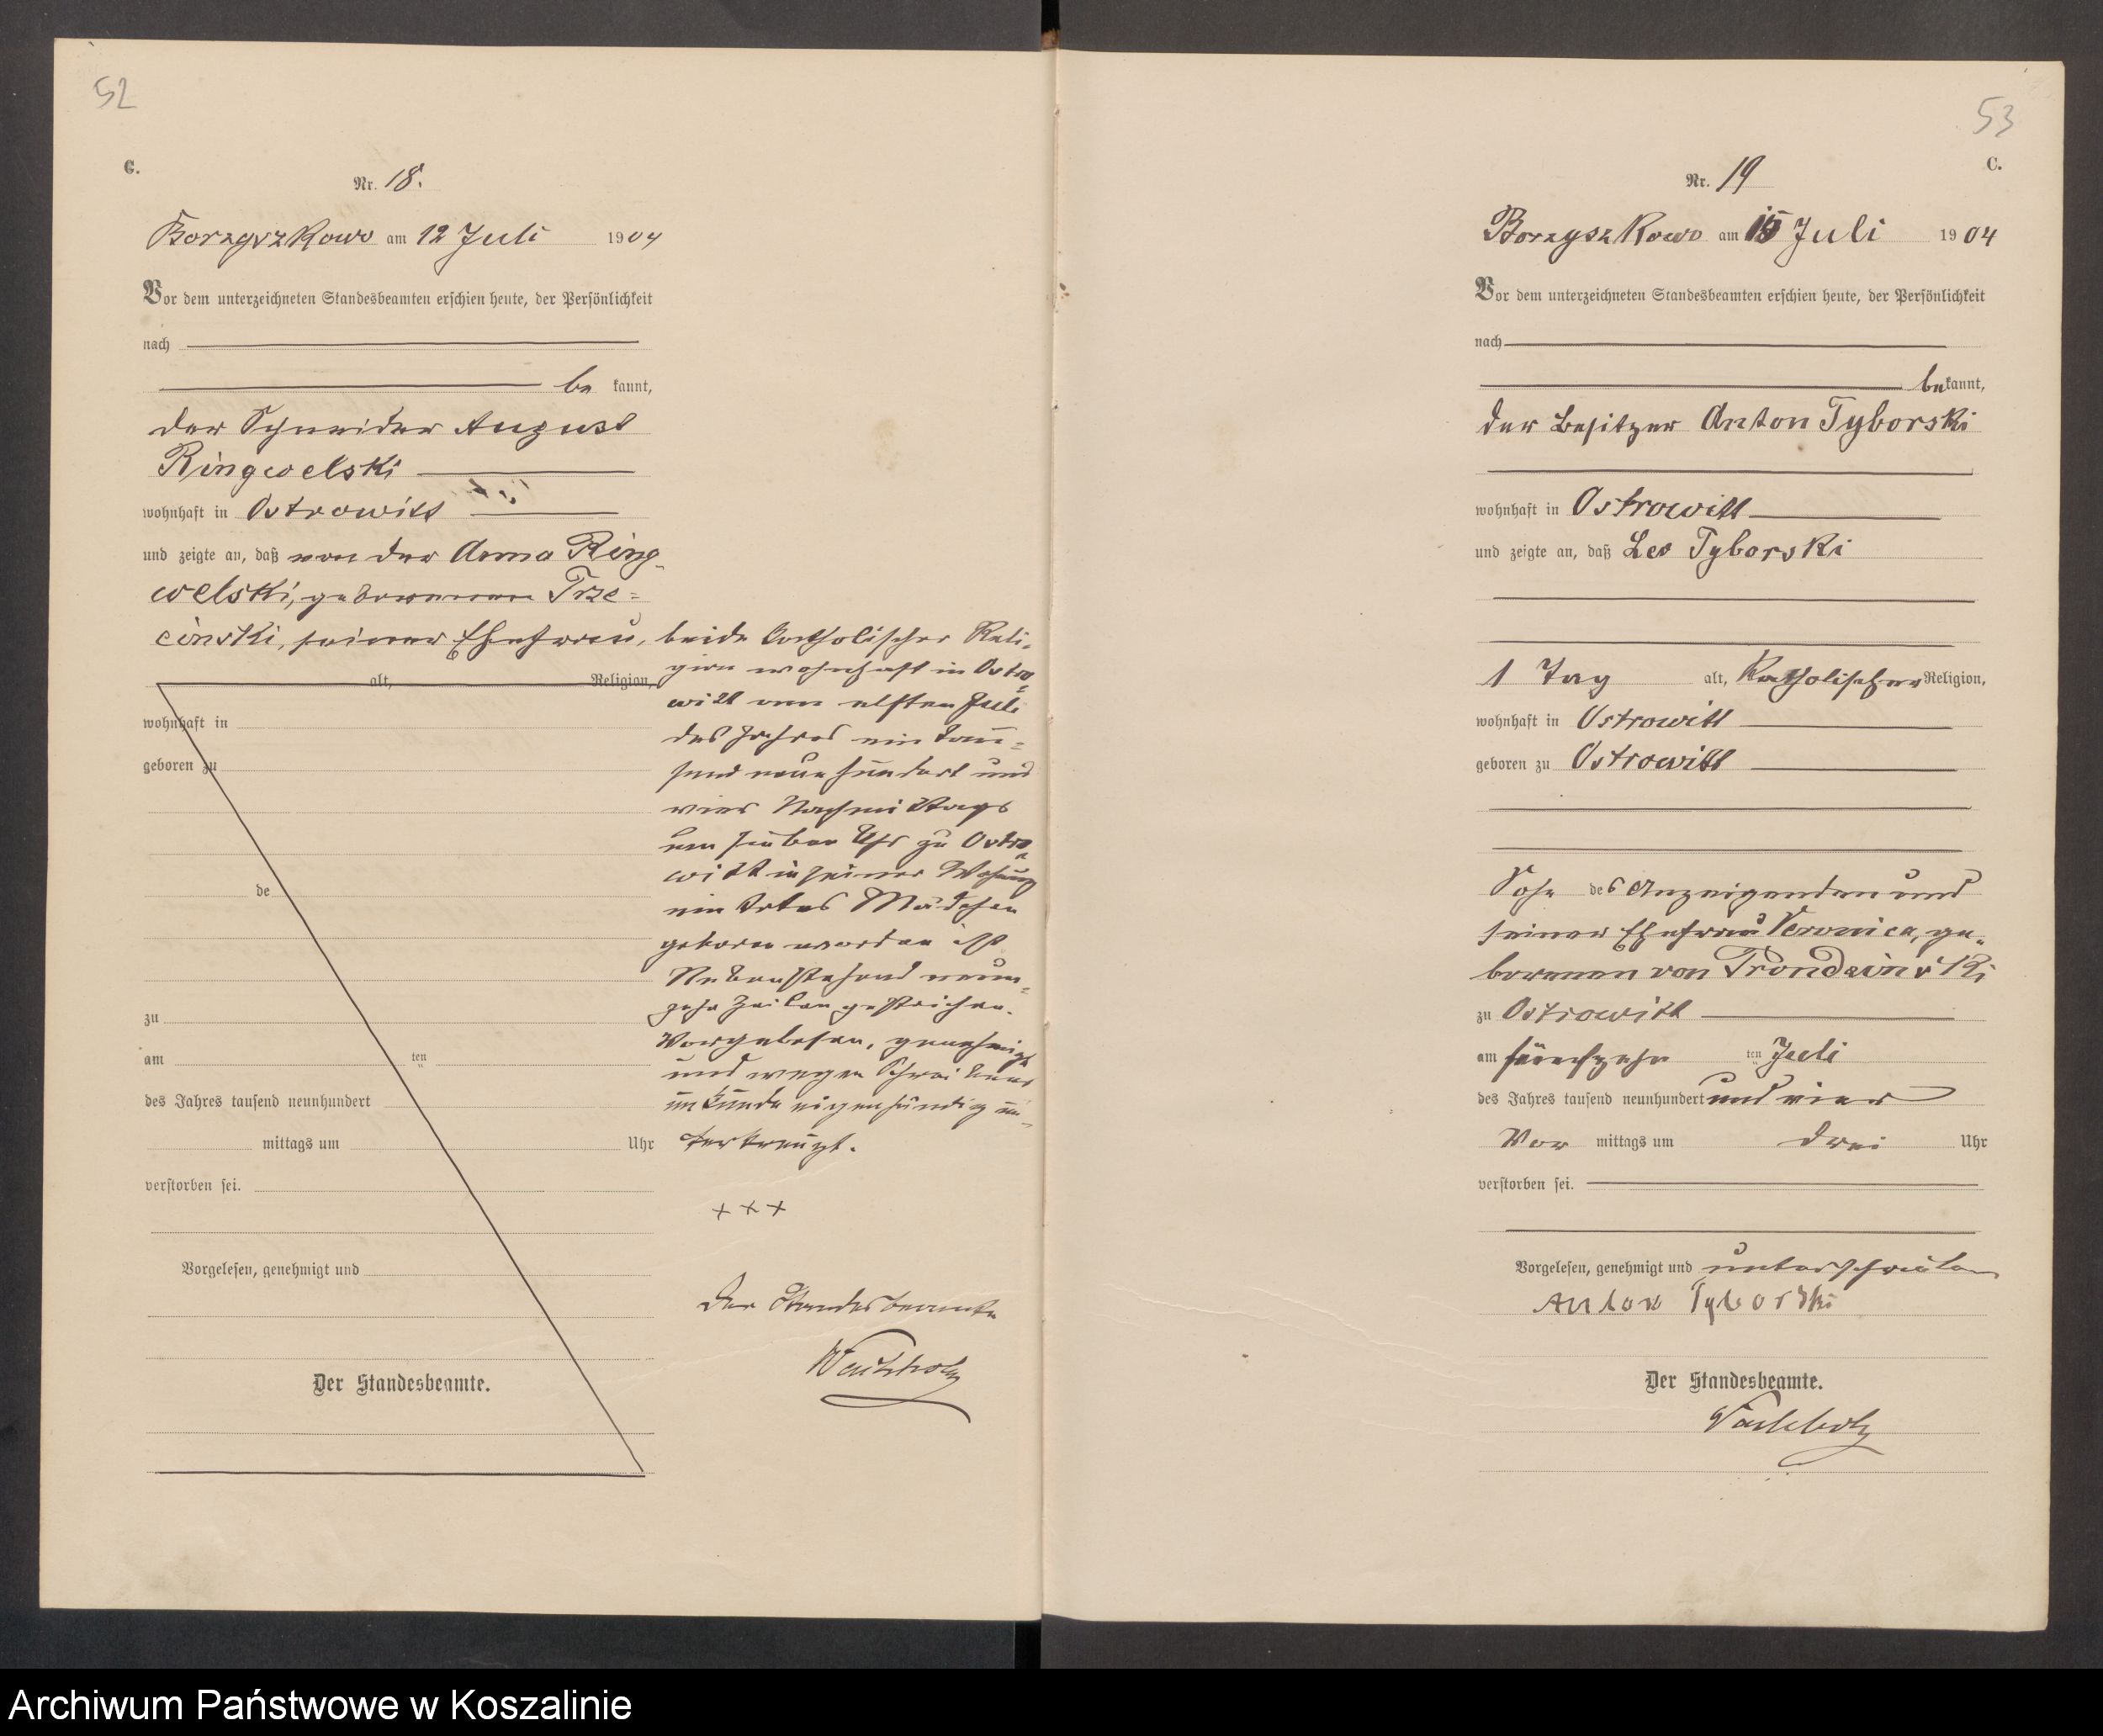 52
C.
Nr. 18.
Borzyszkowo am 12 Juli 1904
Vor dem unterzeichneten Standesbeamten erschien heute, der Persönlichkeit
nach
be kannt,
der Schneider August
Ringwelski
wohnhaft in Ostrowitt
und zeigte an, daß von der Anna Ring-
welski, geborenen Trze=
cinski, seiner Ehefrau,
alt, Religion,
wohnhaft in
geboren zu
de
zu
am ten
des Jahres tausend neunhundert
mittags um Uhr
verstorben sei.
Vorgelesen, genehmigt und
Der Standesbeamte.
beide katholischer Reli-
gion wohnhaft in Ostro-
witt am elften Juli
des Jahres ein tau=
send neun hundert und
vier Nachmittags
um sieben Uhr zu Ostro-
witt in seiner Wohnung
ein totes Mädchen
geboren worden ist
Nebenstehend neun-
zehn Zeilen gestrichen.
Vorgelesen, genehmigt
und wegen Schreibens
unkunde eigenhändig un-
terkreuzt.
+ + +
Der Standesbeamte
53
C.
Nr. 19
Borzyszkowo am 15 Juli 1904
Vor dem unterzeichneten Standesbeamten erschien heute, der Persönlichkeit
nach
bekannt,
der Besitzer Anton Tyborski
wohnhaft in Ostrowitt
und zeigte an, daß Leo Tyborski
1 Tag alt, Katholischer Religion,
wohnhaft in Ostrowitt
geboren zu Ostrowitt
Sohn des Anzeigenden und
seiner Ehefrau Veronica, ge-
borenen von
zu Ostrowitt
am fünfzehn ten Juli
des Jahres tausend neunhundert und vier
Vor mittags um drei Uhr
verstorben sei.
Vorgelesen, genehmigt und unterschrieben
Anton Tyborski
Der Standesbeamte.
Archiwum Państwowe w Koszalinie